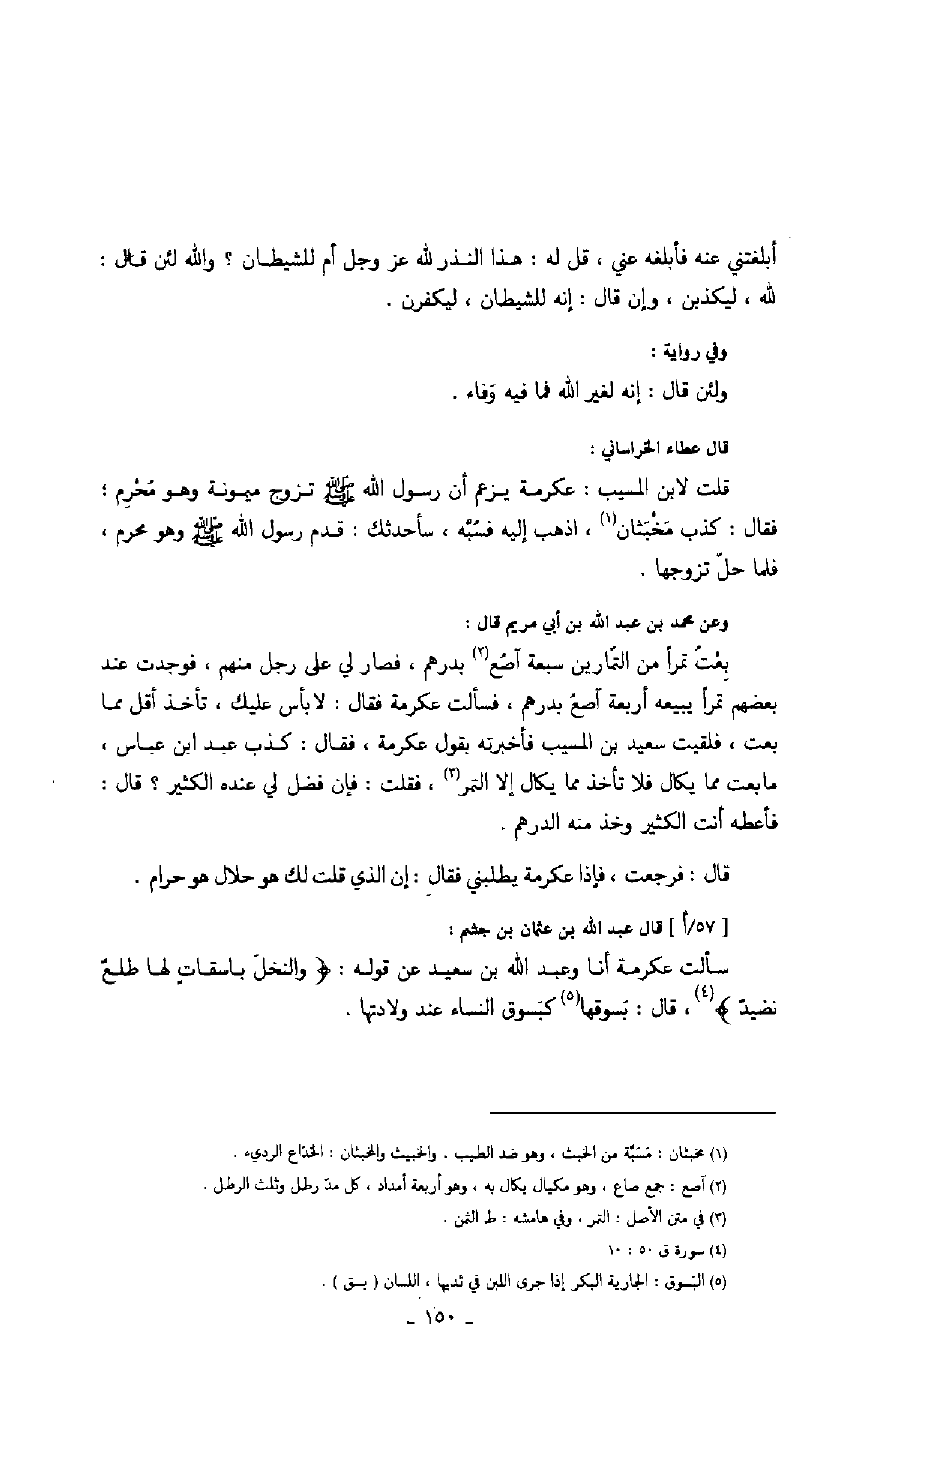 أبلغتني عنه فأبلغه عني ، قل له : هذا النذر لله عز وجل أم للشيطان ؟ والله لئن قال :
لله ، ليكذبن ، وإن قال : إنه للشيطان ، ليكفرن .
وفي رواية :
ولئن قال : إنه لغير الله فما فيه وَفاء .
قال عطاء الخراساني :
قلت لابن المسيب : عكرمة يزعم أن رسول الله ﷺ تزوج ميمونة وهو مُحْرِم ؛
فقال : كذب مَخْبَثان(١) ، اذهب إليه فسُبَّه ، سأحدثك : قدم رسول الله ﷺ وهو محرم ،
فلما حلّ تزوجها .
وعن محمد بن عبد الله بن أبي مريم قال :
بِعْتُ تمراً من التمّارين سبعة آصُع(٢) بدرهم ، فصار لي على رجل منهم ، فوجدت عند
بعضهم تمراً يبيعه أربعة آصعُ بدرهم ، فسألت عكرمة فقال : لابأس عليك ، تأخذ أقل مما
بعت ، فلقيت سعيد بن المسيب فأخبرته بقول عكرمة ، فقال : كذب عبد ابن عباس ،
مابعت مما يكال فلا تأخذ مما يكال إلا التمر(٣) ، فقلت : فإن فضل لي عنده الكثير ؟ قال :
فأعطه أنت الكثير وخذ منه الدرهم .
قال : فرجعت ، فإذا عكرمة يطلبني فقال : إن الذي قلت لك هو حلال هو حرام .
[ ٥٧/أ ] قال عبد الله بن عثمان بن جشم :
سألت عكرمة أنا وعبد الله بن سعيد عن قوله : ﴿ والنخلَ باسقاتٍ لها طلعٌ
نضيدٌ ﴾(٤) ، قال : بَسوقها(٥) كبَسوق النساء عند ولادتها .
(١) مخبثان : مَسَبَّة من الخبث ، وهو ضد الطيب . والخبيث والمخبثان : الخدّاع الرديء .
(٢) آصع : جمع صاع ، وهو مكيال يكال به ، وهو أربعة أمداد ، كل مدّ رطل وثلث الرطل .
(٣) في متن الأصل : التمر ، وفي هامشه : ط الثمن .
(٤) سورة ق ٥٠ : ١٠
(٥) البَسوق : الجارية البكر إذا جرى اللبن في ثديها ، اللسان ( بسق ) .
ـ ١٥٠ ـ